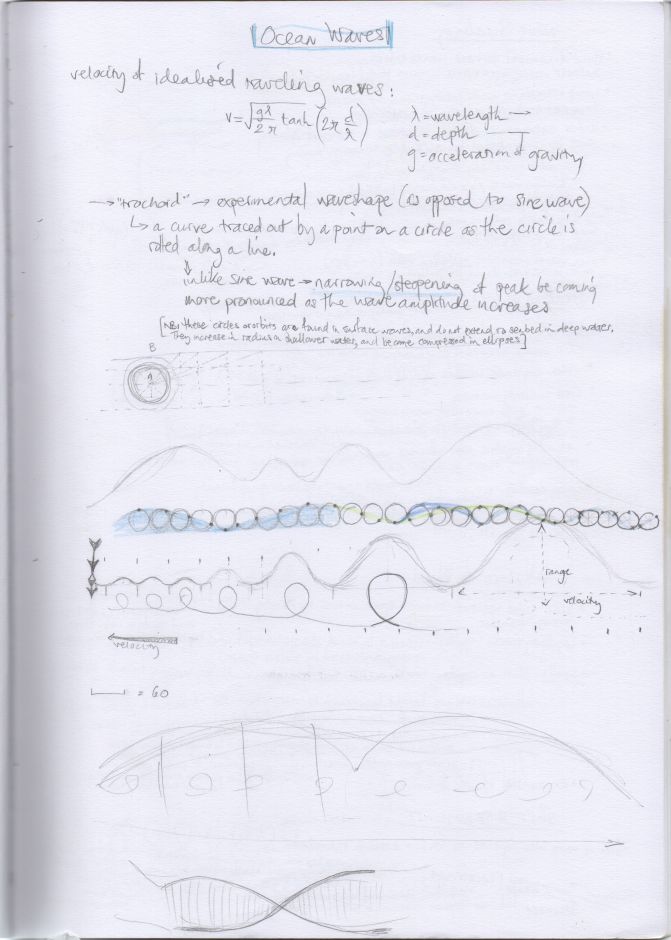 Ocean Waves
velocity of idealised traveling waves:
v=√gλ/2π tanh (2π d/λ)
λ=wavelength →
d=depth
g=acceleration of gravity
→ "trochord" → experimental waveshape (as opposed to sine wave)
↳ a curve traced out by a point on a circle as the circle is
rolled along a line.
↓ unlike sine wave → narrowing/steepening of peak becoming
more pronounced as the wave amplitude increases
[NB: these circles or orbits are found in surface waves, and do not extend to seabed in deep water,
They increase in radius in shallower water, and become compressed in ellipses]
B
range
velocity
velocity
= 60